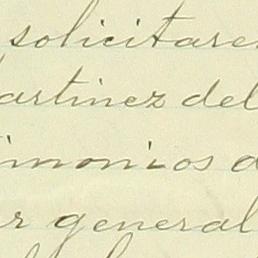 solicitare
artinez del
imonios d
r general